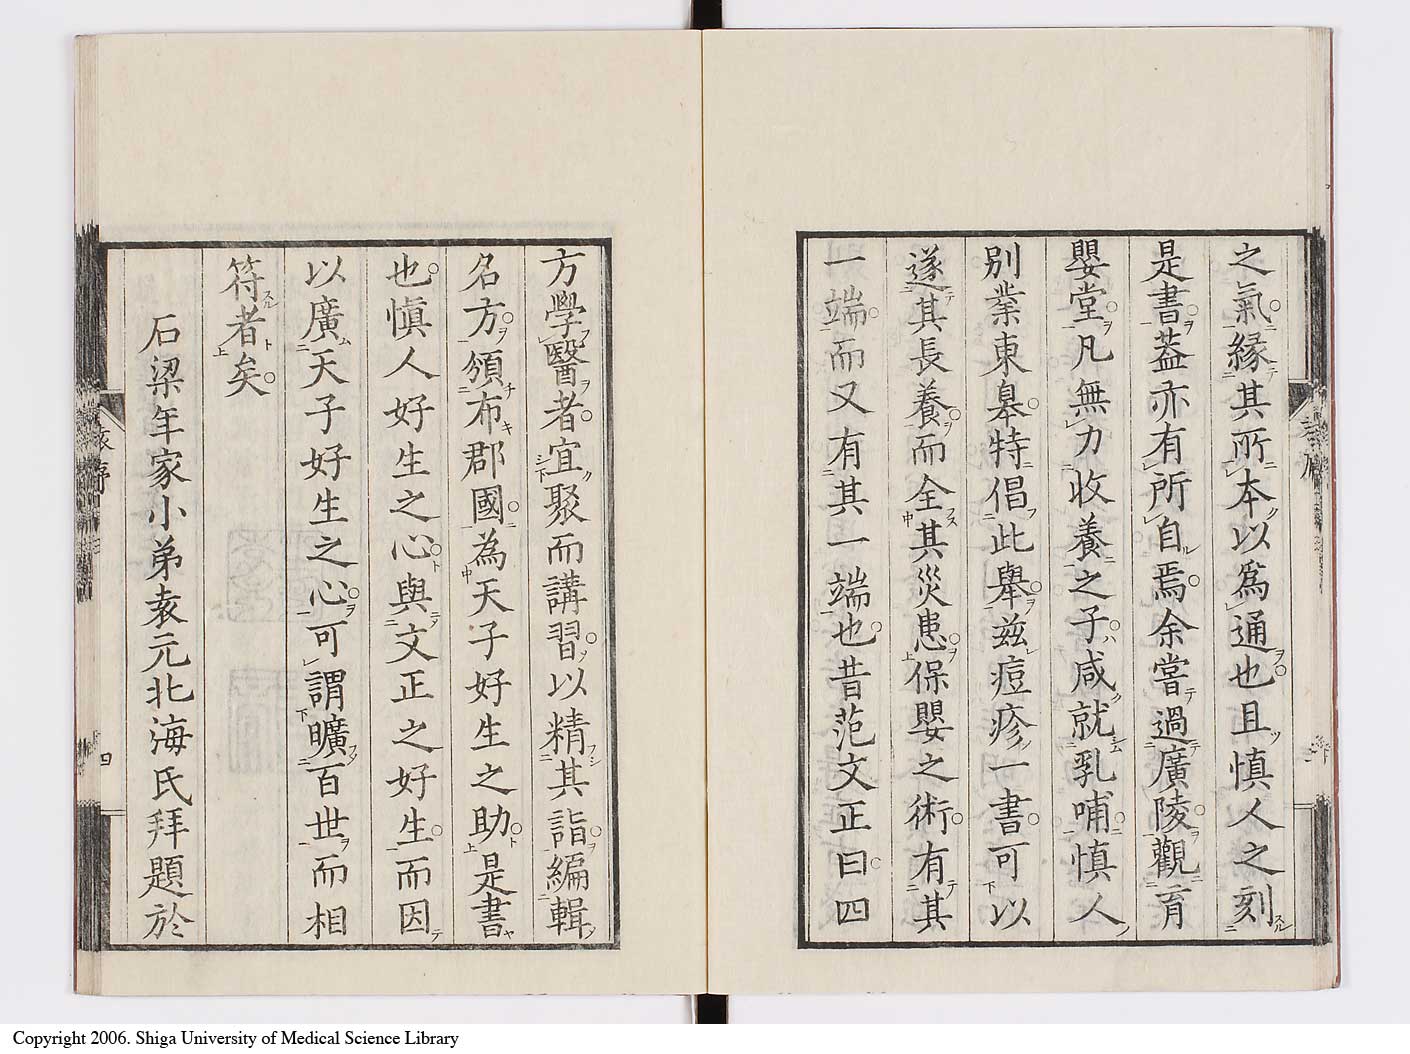 之氣緣其所本以爲通也且慎人之刻
是書葢亦有所自焉余嘗過廣陵觀育
嬰堂凡無力收養之子咸就乳哺慎人
別業東臯特倡此舉茲痘疹一書可以
遂其長養而全其災患保嬰之術有其
一端而又有其一端也昔范文正曰四
方學醫者宜聚而講習以精其詣編輯
名方頒布郡國為天子好生之助是書
也慎人好生之心與文正之好生而因
以廣天子好生之心可謂曠百世而相
符者矣
石梁年家小弟袁元北海氏拜題於
袁序
四
Copyright 2006. Shiga University of Medical Science Library